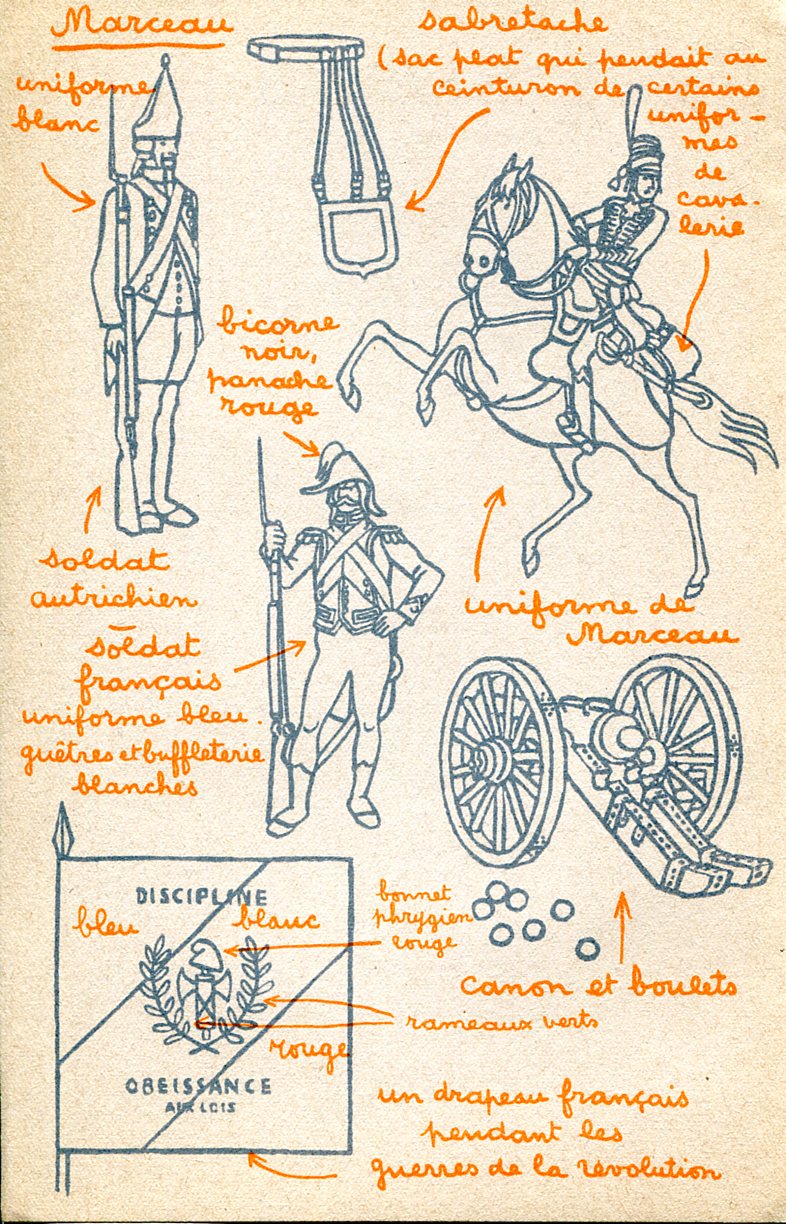 Marceau
uniforme
blanc
sabretache
(sac plat qui pendait au
ceinturon de certains
unifor-
mes
de
cava-
lerie
bicorne
noir,
panache
rouge
soldat
autrichien
soldat
français
uniforme bleu.
guêtres et buffleterie
blanches
uniforme de
Marceau
DISCIPLINE
bleu
blanc
bonnet
phrygien
rouge
canon et boulets
rameaux verts
rouge
OBEISSANCE
AUX LOIS
un drapeau français
pendant les
guerres de la révolution